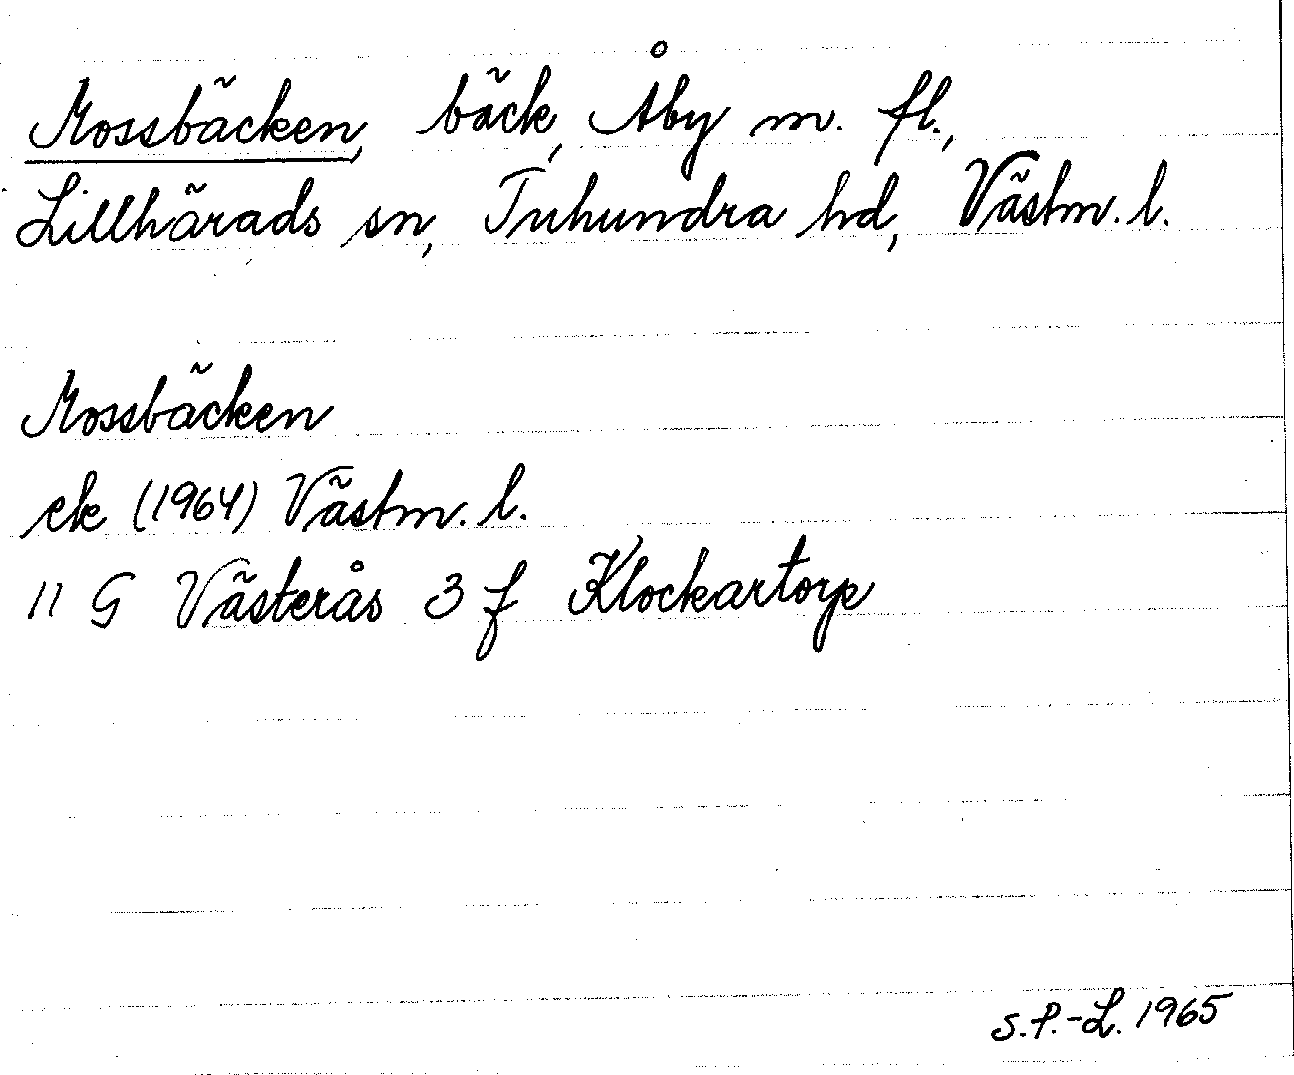 Mossbäcken, bäck, Åby m. fl.,
Lillhärads sn, Tuhundra hd, Västm. l.
Mossbäcken
ek (1964) Västm. l.
11 G Västerås 3 f Klockartorp
S.P.-L. 1965